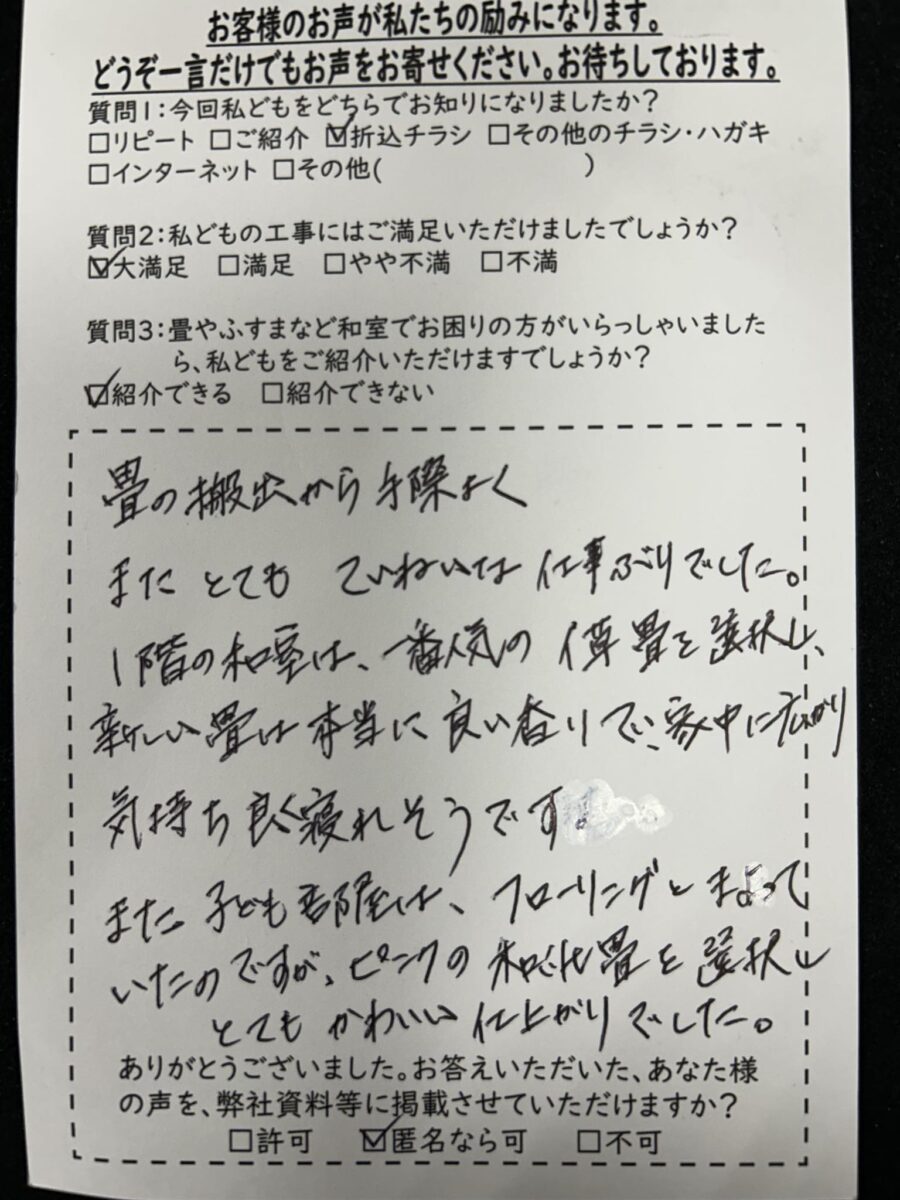 お客様のお声が私たちの励みになります。
どうぞ一言だけでもお声をお寄せください。お待ちしております。
質問1:今回私どもをどちらでお知りになりましたか?
□リピート □ご紹介 ☑折込チラシ □その他のチラシ・ハガキ
□インターネット □その他( )
質問2:私どもの工事にはご満足いただけましたでしょうか?
☑大満足 □満足 □やや不満 □不満
質問3:畳やふすまなど和室でお困りの方がいらっしゃいました
ら、私どもをご紹介いただけますでしょうか?
☑紹介できる □紹介できない
畳の搬出から手際よく
また とても ていねいな 仕事ぶりでした。
1階の和室は、一番人気の 畳を選択し、
新しい畳は本当に良い香りで、家中に広がり
気持ち良く寝れそうです!
また 子ども部屋は、フローリングとまよって
いたのですが、ピンクの 畳を選択し
とても かわいい 仕上がりでした。
ありがとうございました。お答えいただいた、あなた様
の声を、弊社資料等に掲載させていただけますか?
□許可 ☑匿名なら可 □不可